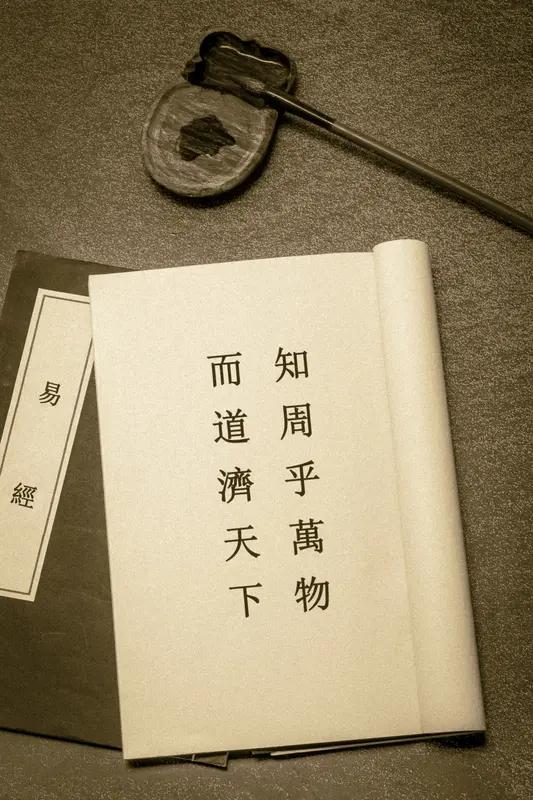 知周乎萬物
而道濟天下
易經